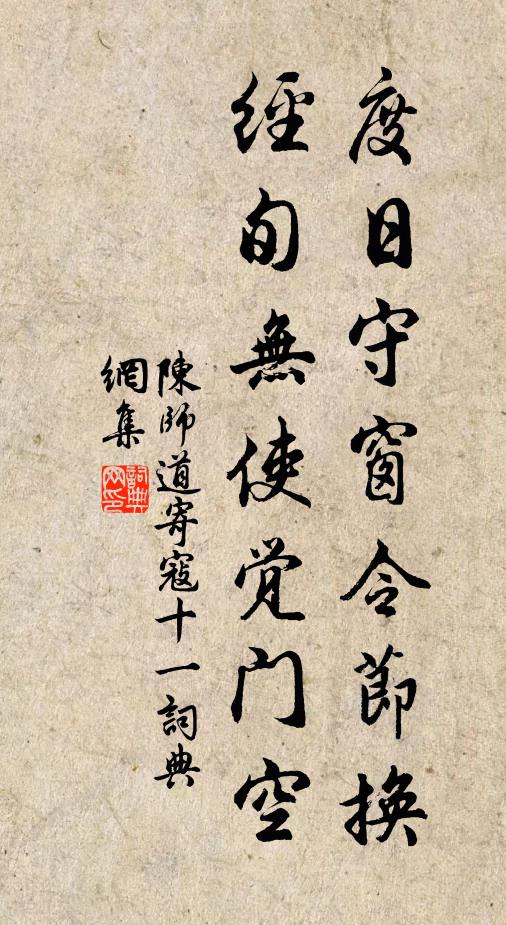 度日守窗令節換
經旬無使覺門空
陳師道寄寇十一詞典
網集
詞典
网印